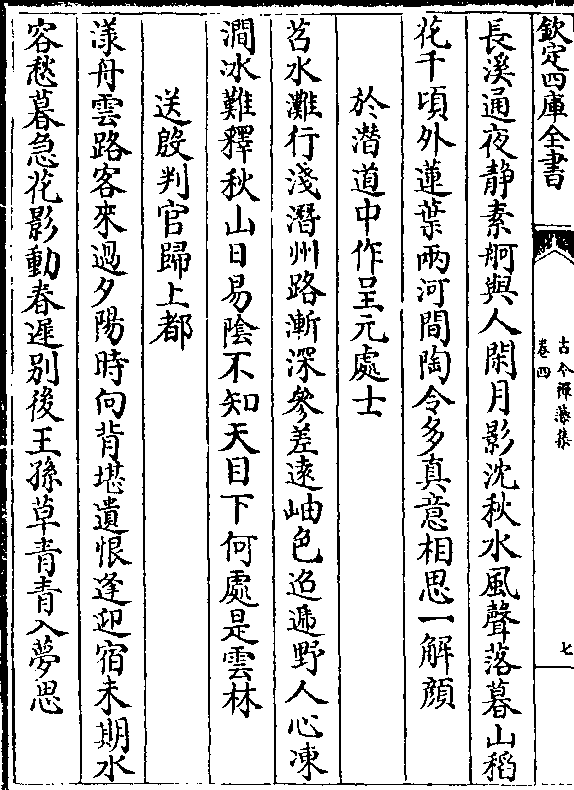 欽定四庫全書
古今禪藻集
卷四
七
長溪通夜静素舸與人閑月影沈秋水風聲落暮山稻
花千頃外蓮葉兩河間陶令多真意相思一解顔
於潛道中作呈元處士
苕水灘行淺潛州路漸深參差遠岫色迢遞野人心凍
澗冰難釋秋山日易陰不知天目下何處是雲林
送殷判官歸上都
漾舟雲路客來過夕陽時向背堪遺恨逢迎宿未期水
容愁暮急花影動春遲别後王孫草青青入夢思